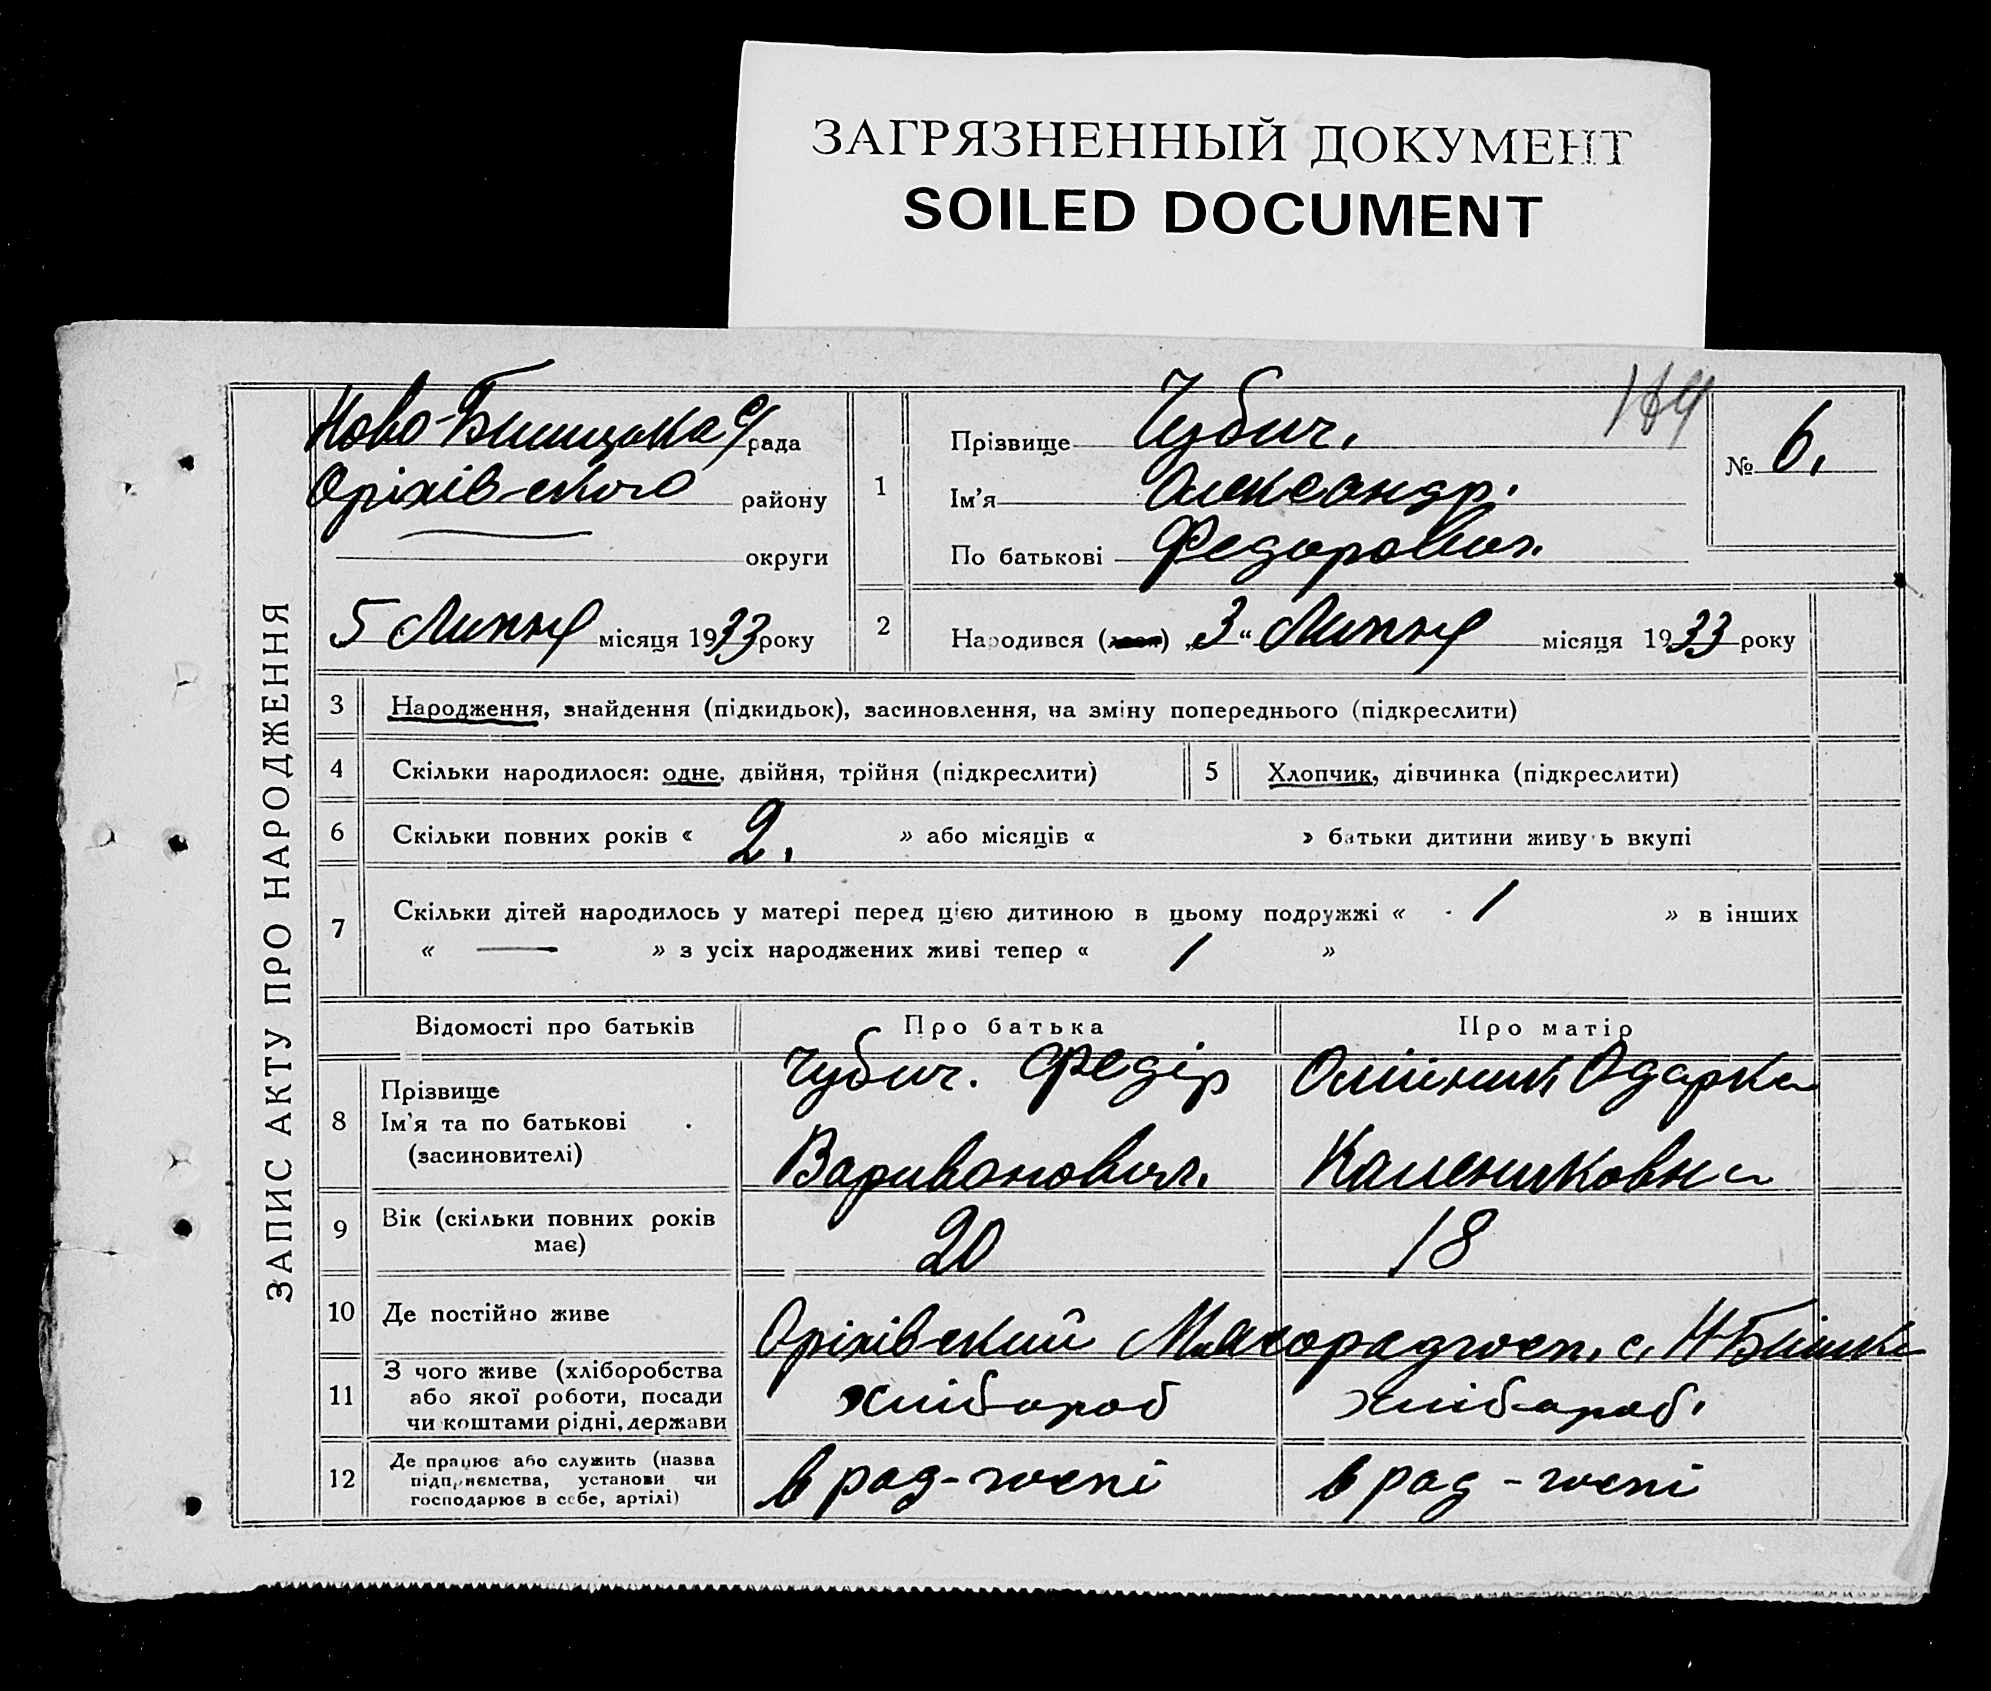 ЗАГРЯЗНЕННЫЙ ДОКУМЕНТ
SOILED DOCUMENT
ЗАПИС АКТУ ПРО НАРОДЖЕННЯ
с/рада
Оріхівського району
округи
5 Липня місяця 1933 року
1
Прізвище Чубич.
Ім'я Олександр.
По батькові Федорович.
№ 6.
2 Народився (лась) „3“ Липня місяця 1933 року
3 Народження, знайдення (підкидьок), засиновлення, на зміну попереднього (підкреслити)
4 Скільки народилося: одне, двійня, трійня (підкреслити) 5 Хлопчик, дівчинка (підкреслити)
6 Скільки повних років « 2. » або місяців « » батьки дитини живуть вкупі
7 Скільки дітей народилось у матері перед цією дитиною в цьому подружжі « 1 » в інших
« — » з усіх народжених живі тепер « 1 »
Відомості про батьків Про батька Про матір
8 Прізвище
Ім'я та по батькові
(засиновителі)
Чубич. Федір
Вариванович.
Олійник Одарка
Калениковна
9 Вік (скільки повних років
має)
20 18
10 Де постійно живе Оріхівский Мясорадгосп. с.
11 З чого живе (хліборобства
або якої роботи, посади
чи коштами рідні, держави
хлібороб хлібороб.
12 Де працює або служить (назва
підприємства, установи чи
господарює в себе, артілі)
в рад-госпі в рад-госпі